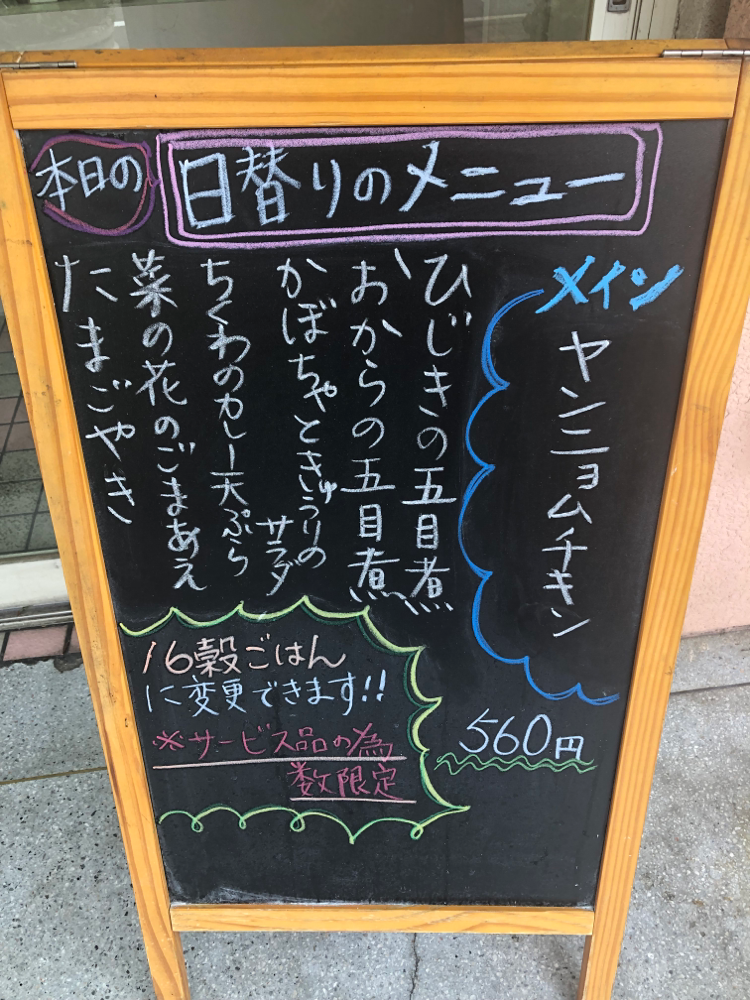 本日の
日替りのメニュー
メイン
ヤンニョムチキン
ひじきの五目煮
おからの五目煮
かぼちゃときゅうりの
サラダ
ちくわのカレー天ぷら
菜の花のごまあえ
たまごやき
560円
16穀ごはん
に変更できます!!
※サービス品の為
数限定